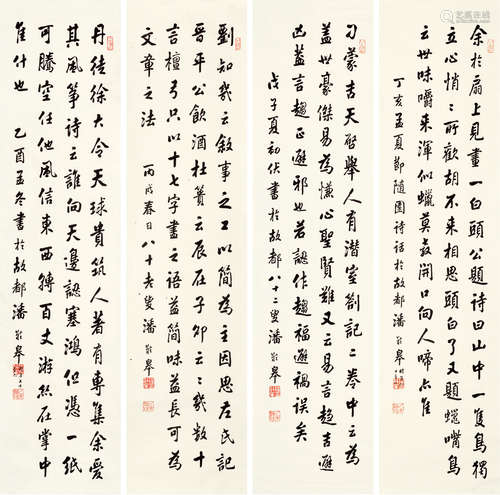 余於扇上見畫一白頭公題詩曰山中一隻鳥獨
立心悄悄所歡胡不來相思頭白了又題蠟嘴鳥
云世味嚼來渾似蠟莫教開口向人啼亦佳
丁亥孟夏節隨園詩話於故都潘齡皋
刁蒙吉天啓舉人有潛室劄記二卷中云為
蓋世豪傑易為慊心聖賢難又云易言趨吉避
凶蓋言趨正避邪也若認作趨福避禍誤矣
戊子夏初伏書於故都八十二叟潘齡皋
劉知幾云敘事之工以簡為主因思左氏記
晉平公飲酒杜蕢云辰在子卯云云幾數十
言檀弓只以十七字書之語益簡味益長可為
文章之法 丙戌春日八十老叟潘齡皋
丹徒徐大令天球貴筑人著有專集余愛
其風箏詩云誰向天邊認塞鴻但憑一紙
可騰空任他風信東西轉百丈游絲在掌中
佳什也 乙酉孟冬書於故都潘齡皋